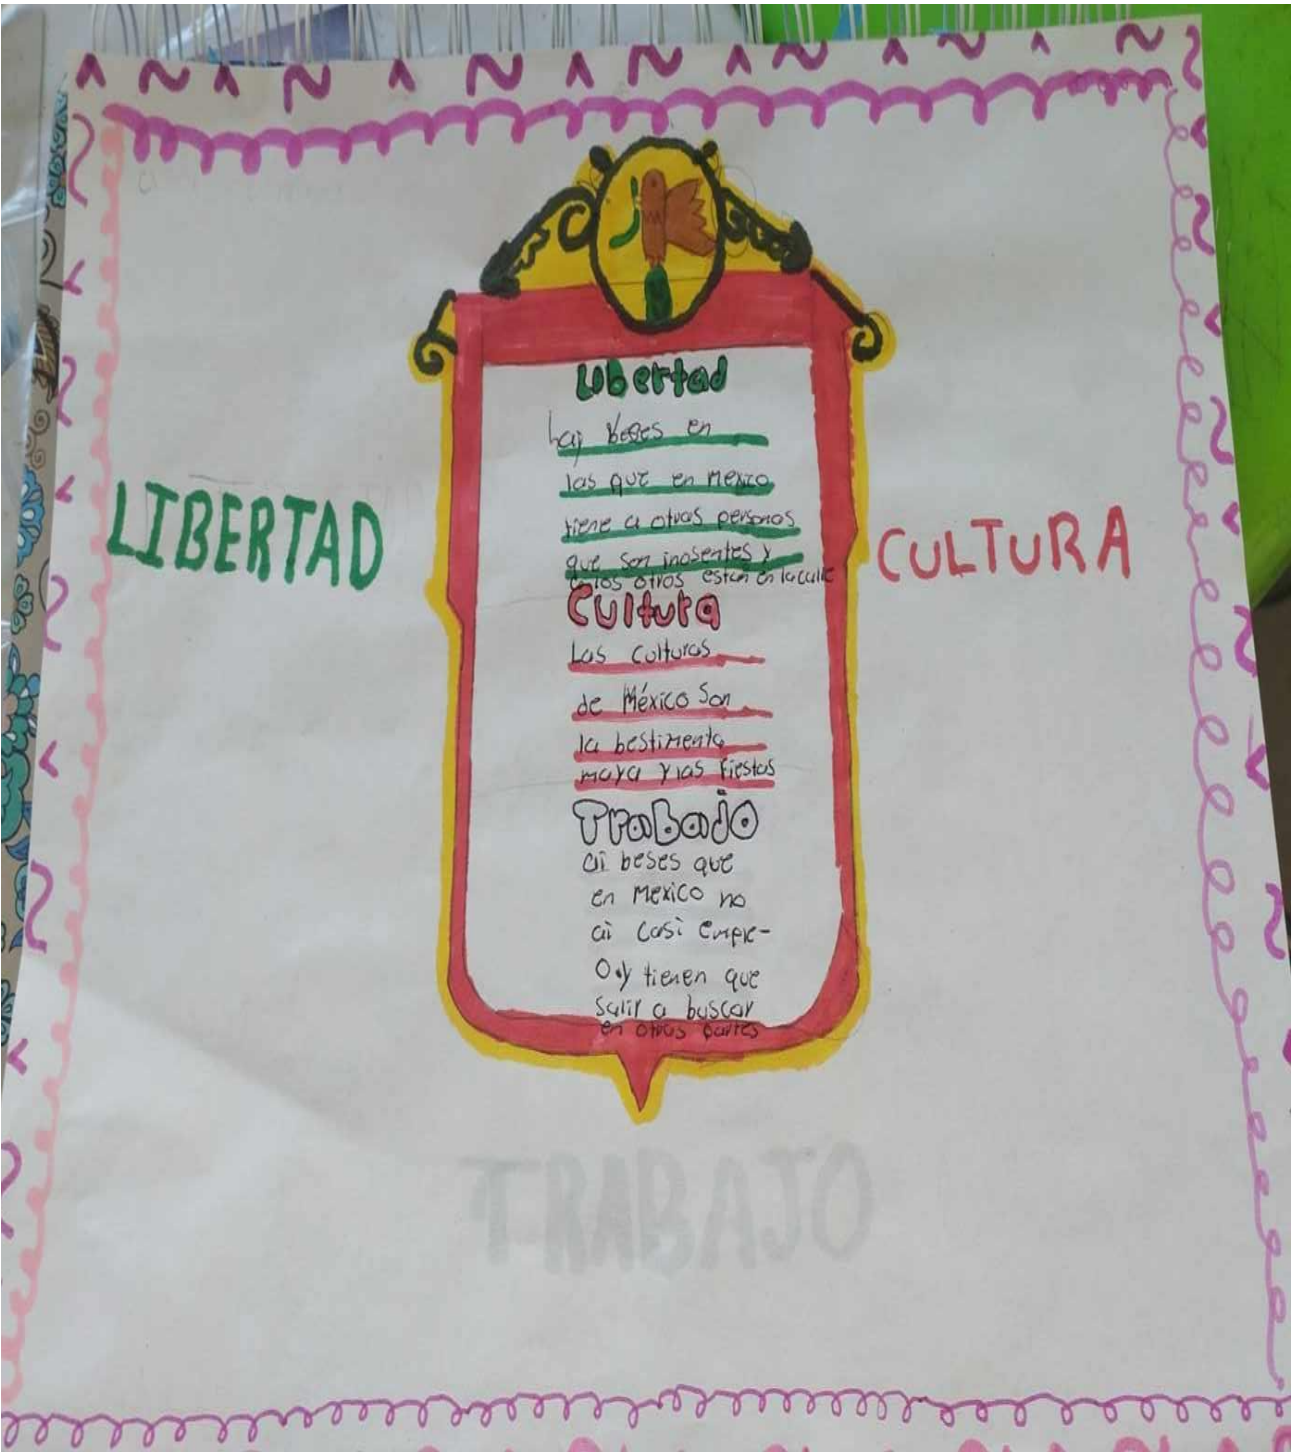 LIBERTAD
CULTURA
Libertad
hay beses en
las que en Mexico
tiene a otras personas
que son inosentes y
a los otros estan en la calle
Cultura
Las culturas
de México Son
la bestimenta
maya y las fiestas
Trabajo
ai beses que
en Mexico no
ai casi emple-
o y tienen que
salir a buscar
en otras partes
TRABAJO